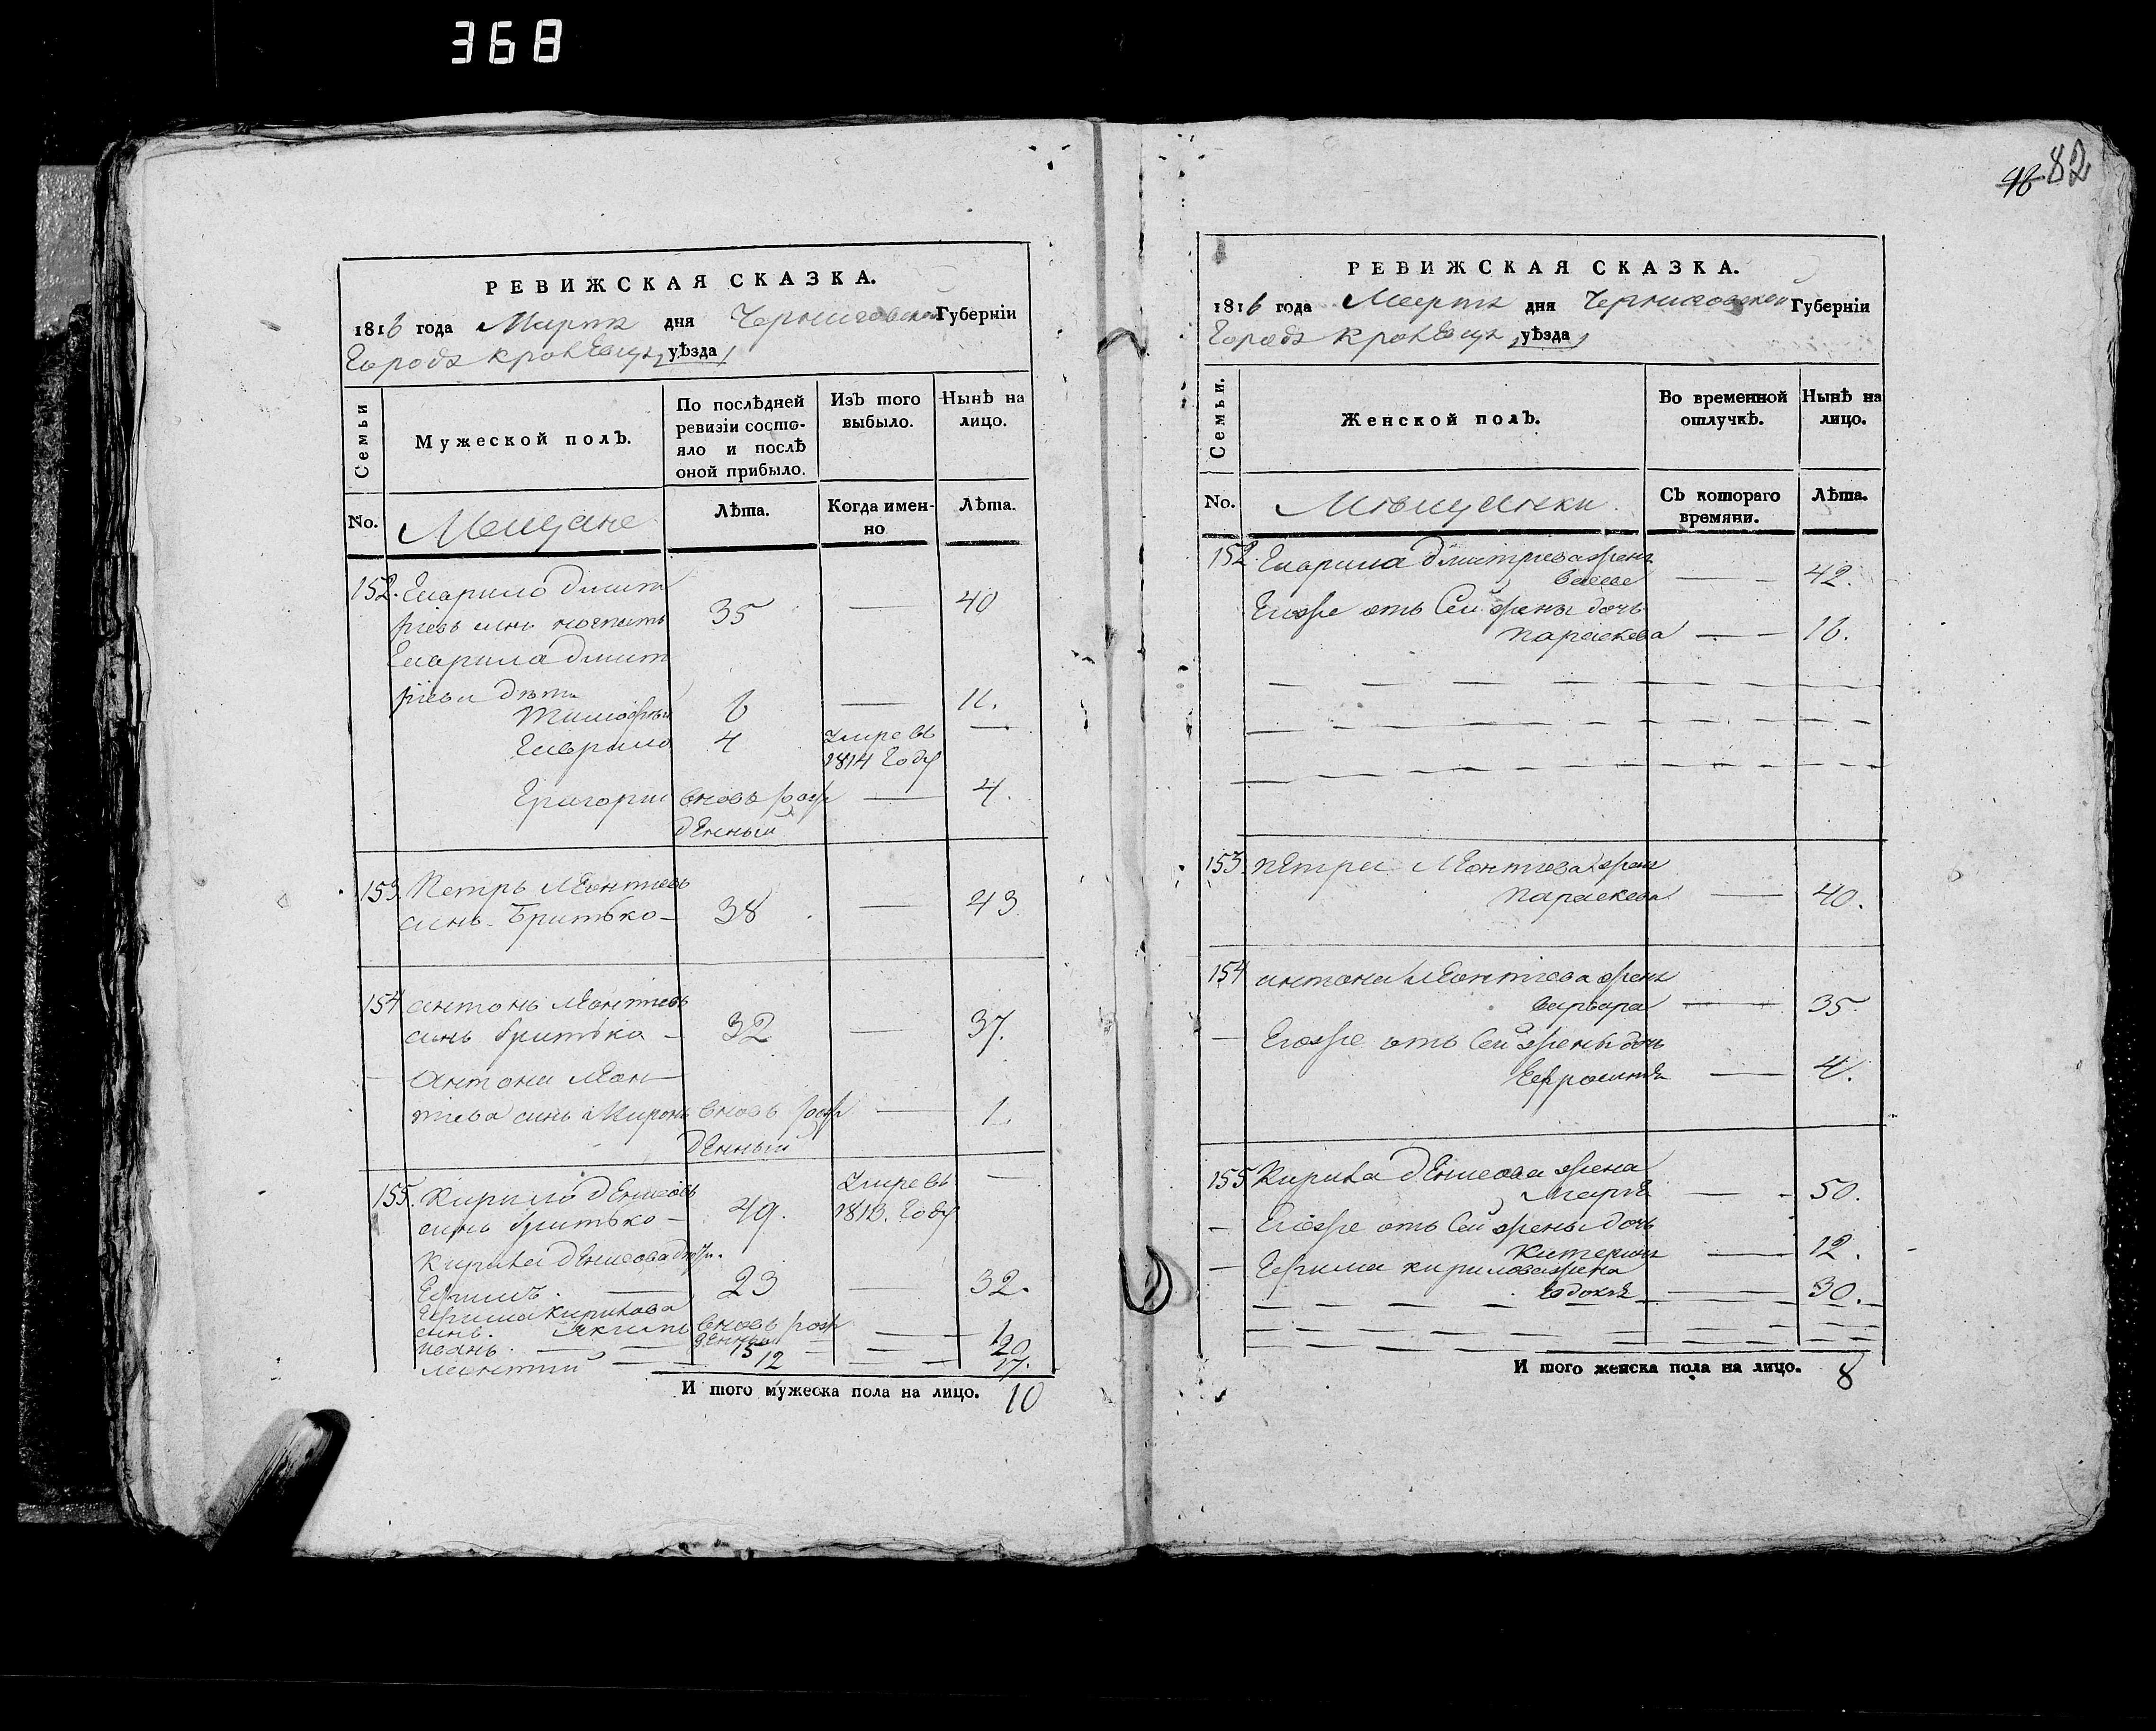 368
82
РЕВИЖСКАЯ СКАЗКА.
1816 года Марта дня Черниговской Губерніи
Города Кролевца уѣзда
Семьи
Мужеской полъ.
По послѣдней ревизіи состояло и послѣ оной прибыло.
Изъ того выбыло.
Нынѣ на лицо.
No.
Мещане
Лѣта.
Когда именно
Лѣта.
152. Гаврило Дмит
ріевъ синъ 35 — 40
Гаврила Дмит
ріева дѣти
Тимофѣй 6 — 11.
Гаврило 4 умре въ —
1814 Году
Григорий вновь рож — 4.
денный
153. Петръ Леонтіевъ
синъ Бритько — 38 — 43
154 антонъ Леонтіевъ
синъ бритько — 32 — 37.
Антона Леон
тіева синъ Миронъ вновь рож — 1.
денный
155. Кирило денисовъ умре въ —
синъ бритько — 49. 1813. Году
Кирила денисова дѣти.
Ефимъ. — 23 — 32.
Ефима Кирилова
синъ. Якимъ вновь рож — 1
денный
иванъ. — 15 — 20
леонтий — 12 — 17.
И того мужеска пола на лицо. 10
РЕВИЖСКАЯ СКАЗКА.
1816 года Марта дня Черниговской Губерніи
Города Кролевца уѣзда
Семьи.
Женской полъ.
Во временной отлучкѣ.
Нынѣ на лицо.
No.
Мѣщанки.
Съ котораго времяни.
Лѣта.
152. Гаврила дмитріева жена
— 42.
Егоже отъ Сей жены дочь
параскева — 16.
153. петра Леонтіева жена
параскева — 40.
154 антона Леонтіева жена
варвара — 35.
Егоже отъ Сей жены дочь
Ефросинія — 4.
155 Кирила денисова жена
Марія — 50.
Егоже отъ Сей жены дочь
Катерина — 12.
Ефима кирилова жена
Евдокія — 30.
И того женска пола на лицо. 8